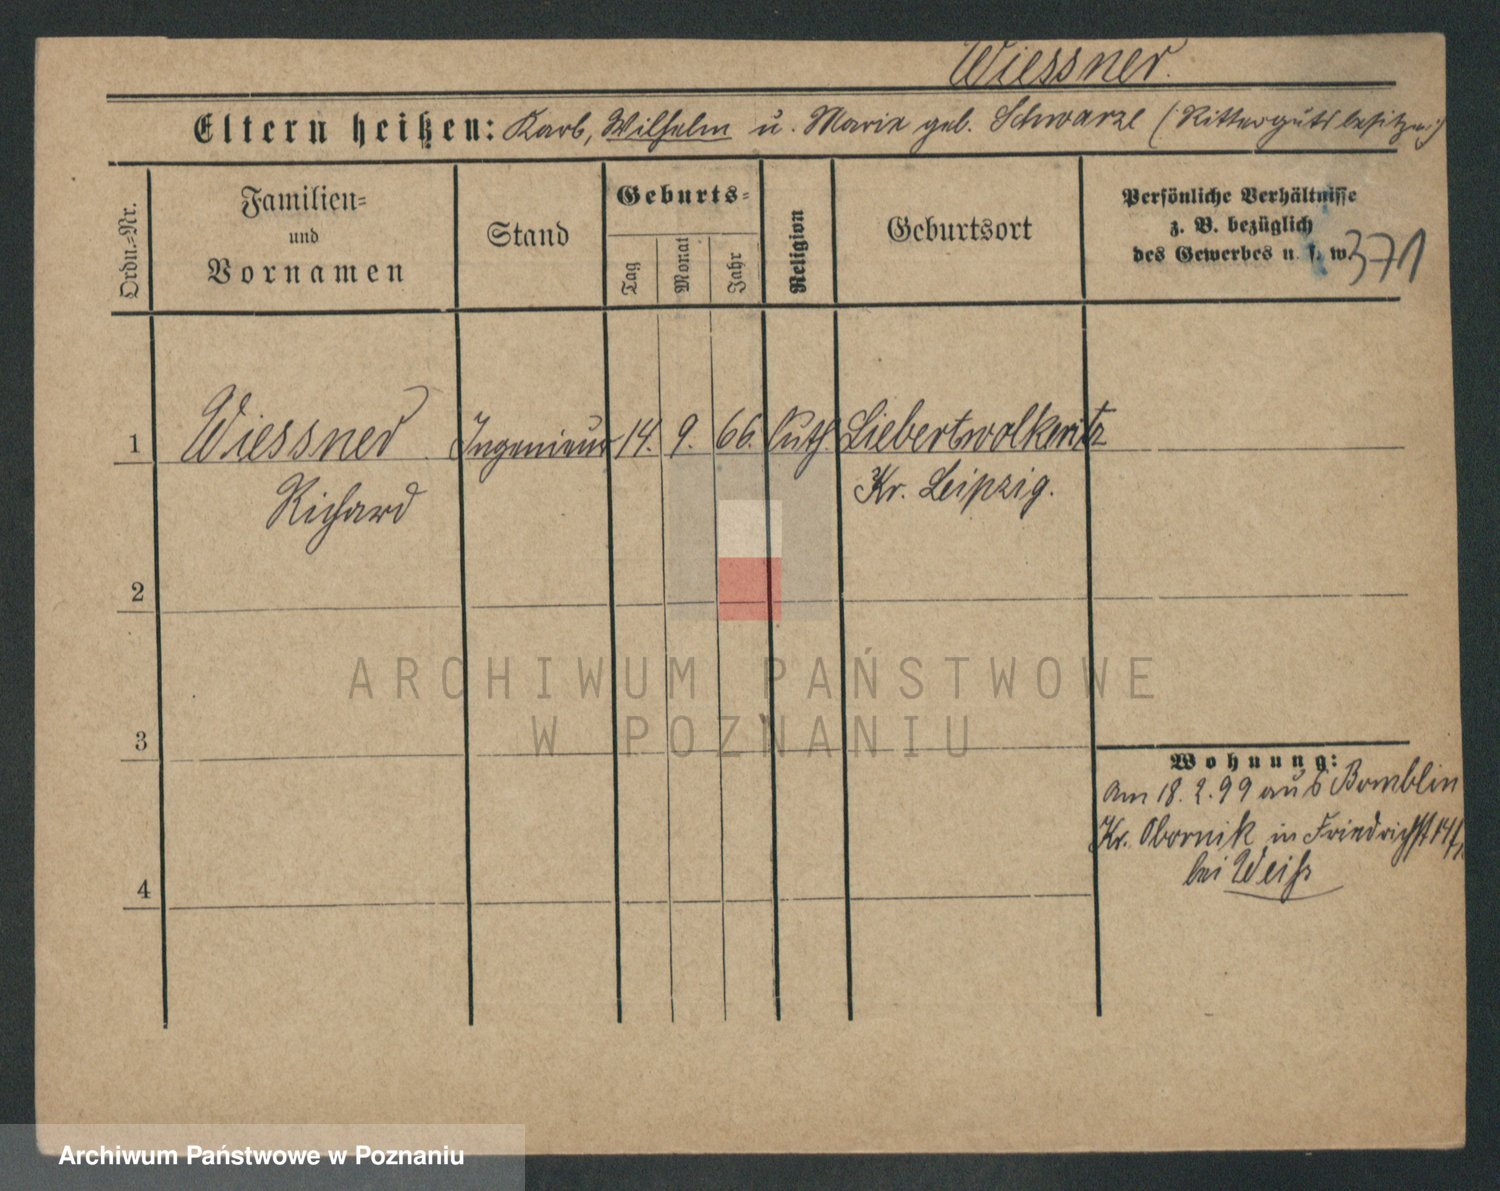 Wiessner.
Eltern heißen: Karl, Wilhelm u. Marie geb. Schwarze (Rittergutsbesitzer)
Ordn.-Nr.
Familien-
und
Vornamen
Stand
Geburts-
Tag
Monat
Jahr
Religion
Geburtsort
Persönliche Verhältnisse
z. B. bezüglich
des Gewerbes u. s. w.
371
1
Wiessner
Ingenieur
14.
9.
66.
luth.
Liebertwolkwitz
Richard
Kr. Leipzig.
2
ARCHIWUM PAŃSTWOWE
W POZNANIU
3
Wohnung:
Am 18.2.99 aus Bomblin
Kr. Obornik in Friedrichst 14
bei Weiß
4
Archiwum Państwowe w Poznaniu